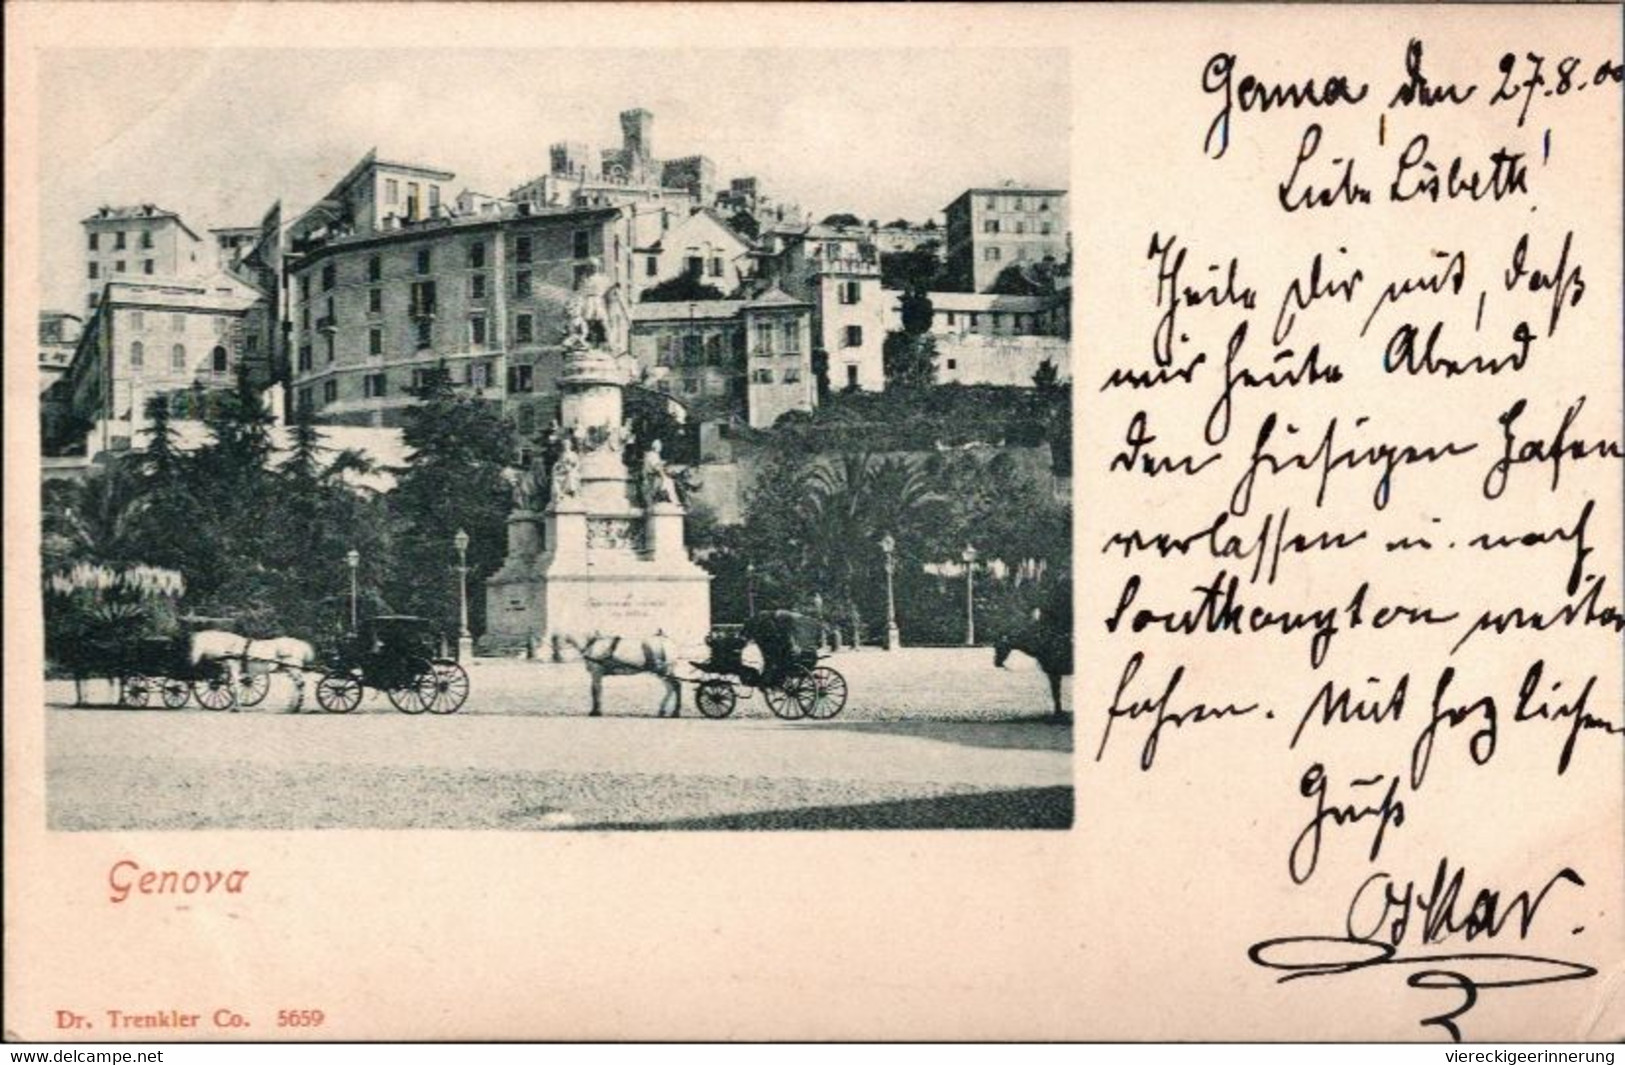 Genua, den 27.8.00
Liebe Lisbeth!
Theile Dir mit, daß
wir heute Abend
den hiesigen Hafen
verlassen u. nach
Southampton weiter
fahren. Mit herzlichem
Gruß
Oskar.
Genova
Dr. Trenkler Co. 5659
www.delcampe.net
viereckigeerinnerung